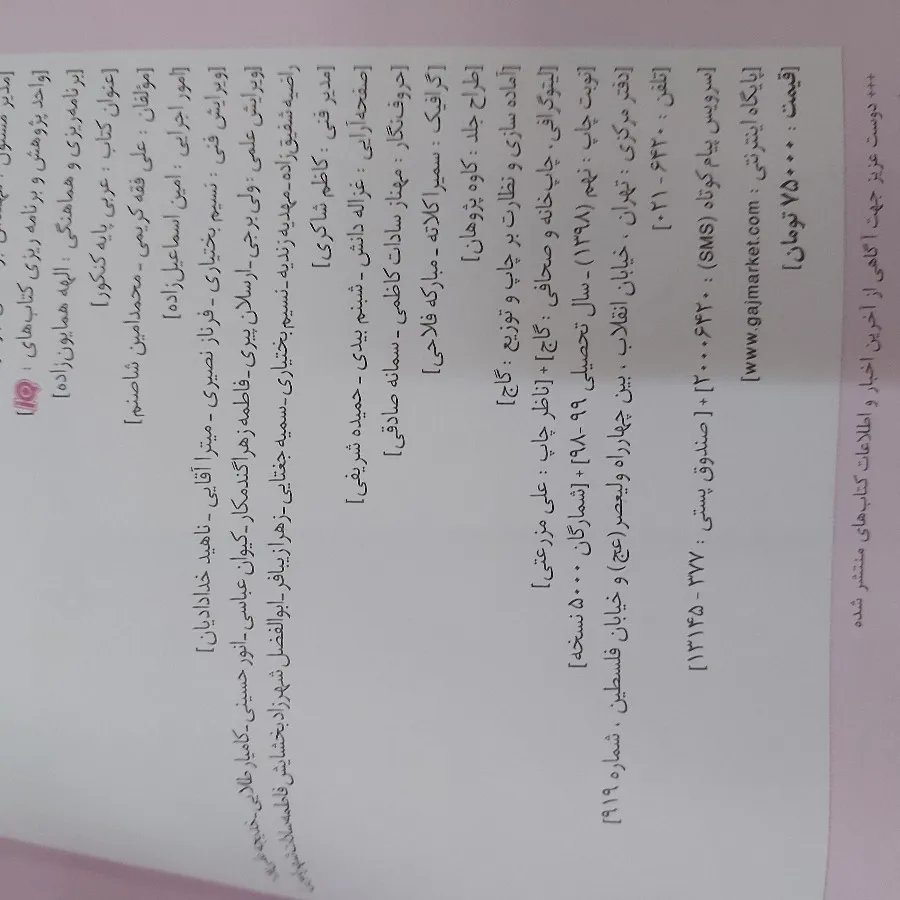 [مدیر مسئول : مهندس
[واحد پژوهش و برنامه ریزی کتاب‌های :
[برنامه‌ریزی و هماهنگی : الهه همایون‌زاده]
[عنوان کتاب : عربی پایه کنکور]
[مؤلفان : علی فقه کریمی ـ محمدامین شاصنم]
[امور اجرایی : امین اسماعیل‌زاده]
[ویرایش فنی : نسیم بختیاری ـ فرناز نصیری ـ میترا آقایی ـ ناهید خدادادیان]
[ویرایش علمی : ولی برجی ـ ارسلان پیری ـ فاطمه زهرا گندمکار ـ کیوان عباسی ـ انور حسینی ـ کامیار طلایی ـ خدیجه
راضیه شفیق‌زاده ـ مهدیه زندیه ـ نسیم بختیاری ـ سمیه جغتایی ـ زهرا زیبافر ـ ابوالفضل شهرزاد بخشایش
[مدیر فنی : کاظم شاکری]
[صفحه‌آرایی : غزاله دانش ـ شبنم بیدی ـ حمیده شریفی]
[حروف‌نگار : مهناز سادات کاظمی ـ سمانه صادقی]
[گرافیک : سمیرا کلاته ـ مبارکه فلاحی]
[طراح جلد : کاوه پژوهان]
[آماده سازی و نظارت بر چاپ و توزیع : گاج]
[لیتوگرافی ، چاپ‌خانه و صحافی : گاج] + [ناظر چاپ : علی مزرعتی]
[نوبت چاپ : نهم (۱۳۹۸) ـ سال تحصیلی ۹۹-۹۸] + [شمارگان ۵۰۰۰ نسخه]
[دفتر مرکزی : تهران ، خیابان انقلاب ، بین چهارراه ولیعصر(عج) و خیابان فلسطین ، شماره ۹۱۹]
[تلفن : ۶۴۲۰-۰۲۱]
[سرویس پیام کوتاه (SMS) : ۲۰۰۰۶۴۲۰] + [صندوق پستی : ۳۷۷ - ۱۳۱۴۵]
[پایگاه اینترنتی : www.gajmarket.com]
[قیمت : ۷۵۰۰۰ تومان]
+++ دوست عزیز جهت آگاهی از آخرین اخبار و اطلاعات کتاب‌های منتشر شده